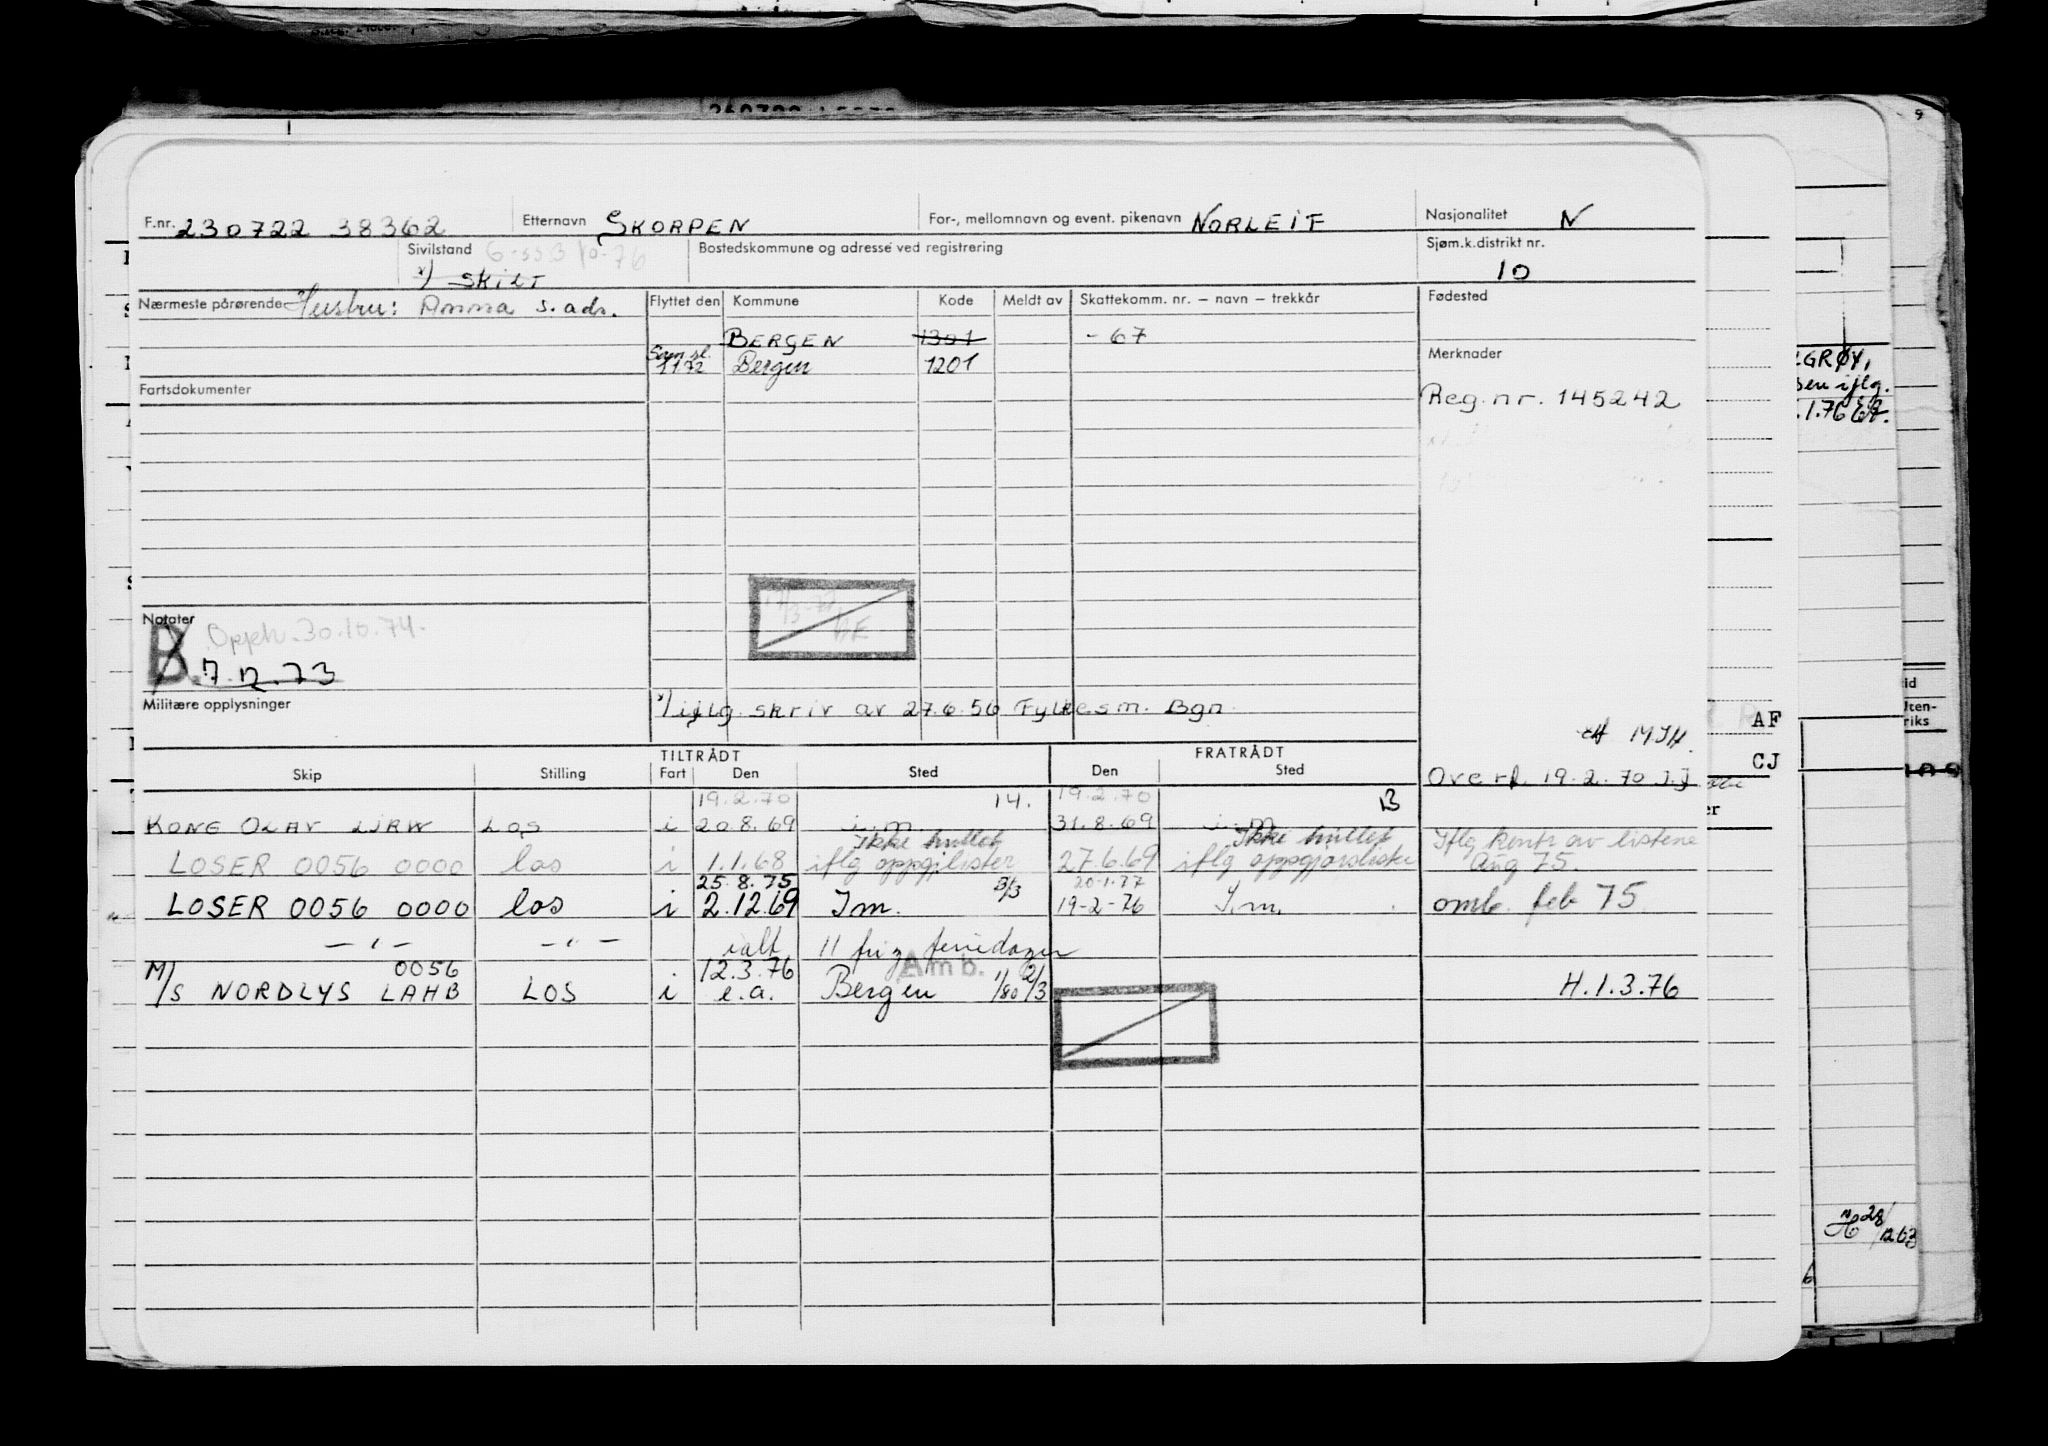 F.nr. 230722 38362 Etternavn SKORPEN For-, mellomnavn og event. pikenavn NORLEIF Nasjonalitet N
Sivilstand x) SKILT Bostedskommune og adresse ved registrering Sjøm.k.distrikt nr. 10
Nærmeste pårørende Hustru: Anna s. adr. Flyttet den Kommune Kode Meldt av Skattekomm. nr. – navn – trekkår Fødested
BERGEN 1301 - 67
Merknader
1172 Bergen 1201
Fartsdokumenter
Reg. nr. 145242
Notater
B Opph. 30.10.74.
7.12.73
Militære opplysninger
x) iflg. skriv av 27.6.56 Fylkesm. Bgn.
MJH.
AF
CJ
TILTRÅDT FRATRÅDT
Skip Stilling Fart Den Sted Den Sted
Overf. 19.2.70 J.J
19.2.70 14. 19.2.70 13
KONG OLAV LJRW Los i 20.8.69 i.m. 31.8.69 i.m.
Ikke hullet Ikke hullet Iflg kontr av listene
LOSER 0056 0000 los i 1.1.68 iflg oppgj.lister 27.6.69 iflg oppgjørslister Aug 75.
25.8.75 3/3 20.1.77
LOSER 0056 0000 los i 2.12.69 Im. 19-2-76 I.m. omb. feb 75
— " — — " — ialt 11 feriedager
Amb.
0056 12.3.76
M/S NORDLYS LAHB LOS i e.a. Bergen 1/80 2/3 H.1.3.76
LGRØY,
iflg.
.1.76